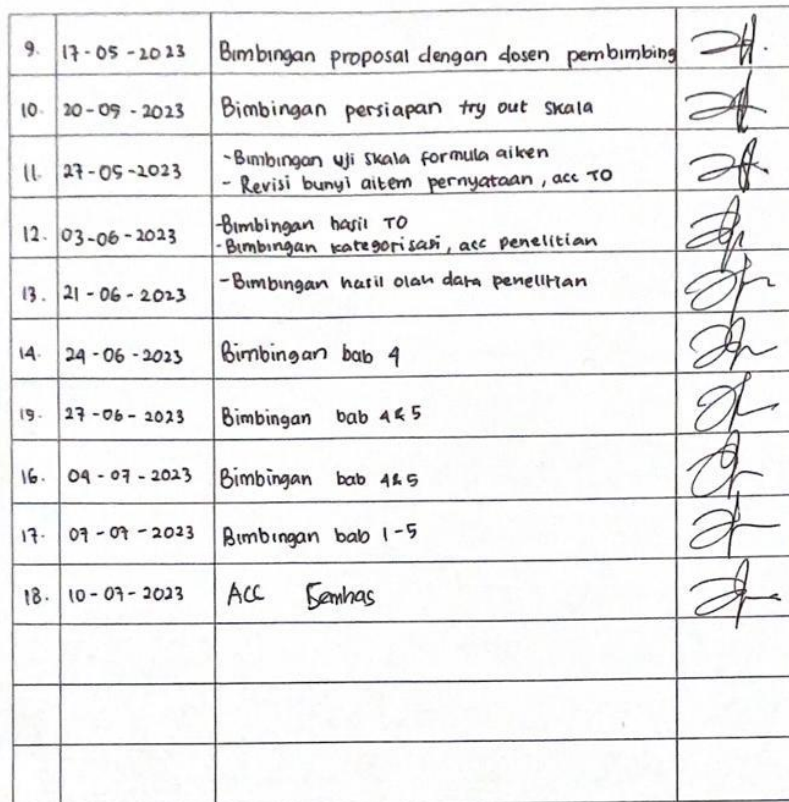 9. 17-05-2023 Bimbingan proposal dengan dosen pembimbing
10. 20-05-2023 Bimbingan persiapan try out skala
11. 27-05-2023 - Bimbingan uji skala formula aiken
- Revisi bunyi aitem pernyataan, acc TO
12. 03-06-2023 - Bimbingan hasil TO
- Bimbingan kategorisasi, acc penelitian
13. 21-06-2023 - Bimbingan hasil olah data penelitian
14. 24-06-2023 Bimbingan bab 4
15. 27-06-2023 Bimbingan bab 4&5
16. 04-07-2023 Bimbingan bab 4&5
17. 07-07-2023 Bimbingan bab 1-5
18. 10-07-2023 ACC Semhas